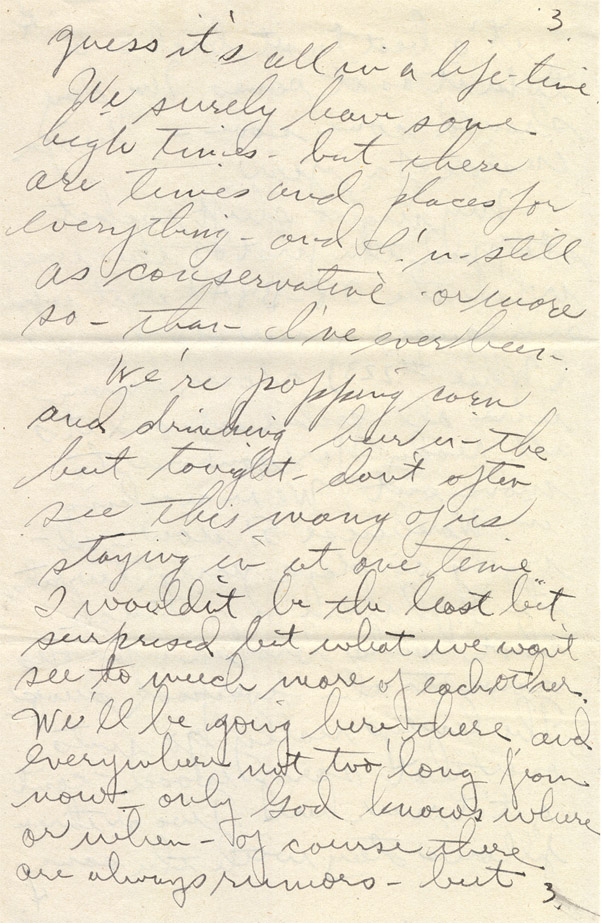 3.
guess it's all in a life-time.
We surely have some
high times - but there
are times and places for
everything - and I'm still
as conservative - or more
so - than I've ever been.
We're popping corn
and drinking beer in the
hut tonight - don't often
see this many of us
staying in at one time
I wouldn't be the least bit
surprised but what we won't
see to much more of eachother.
We'll be going here there and
everywhere not too long from
now - only God knows where
or when - of course there
are always rumors - but
3.